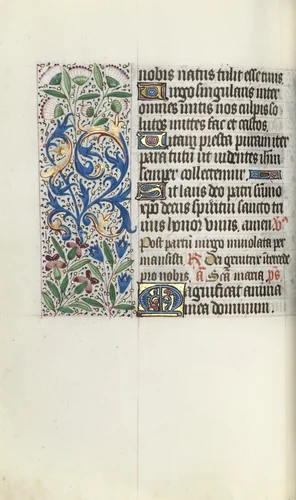 nobis natus tulit esse tuus
Uirgo singularis inter
omnes mitis nos culpis so
lutos mites fac et castos.
Uitam presta puram iter
para tutum ut videntes ihm
semper colletemur
Sit laus deo patri summo
xpo decus spiritui sancto tri
nus honor unus. amen. V
Post partum virgo inviolata per
mansisti R Dei genitrix intercede
pro nobis a Sca maria ps
Magnificat anima
mea dominum.